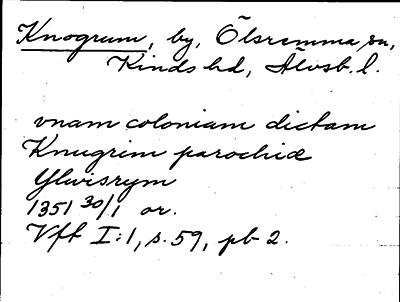 Knogrum, by, Ölsremma sn,
Kinds hd, Älvsb. l.
vnam coloniam dictam
Knugrim parochie
Ylwisrym
1351 30/1 or.
Vfr I:1, s. 59, pb 2.